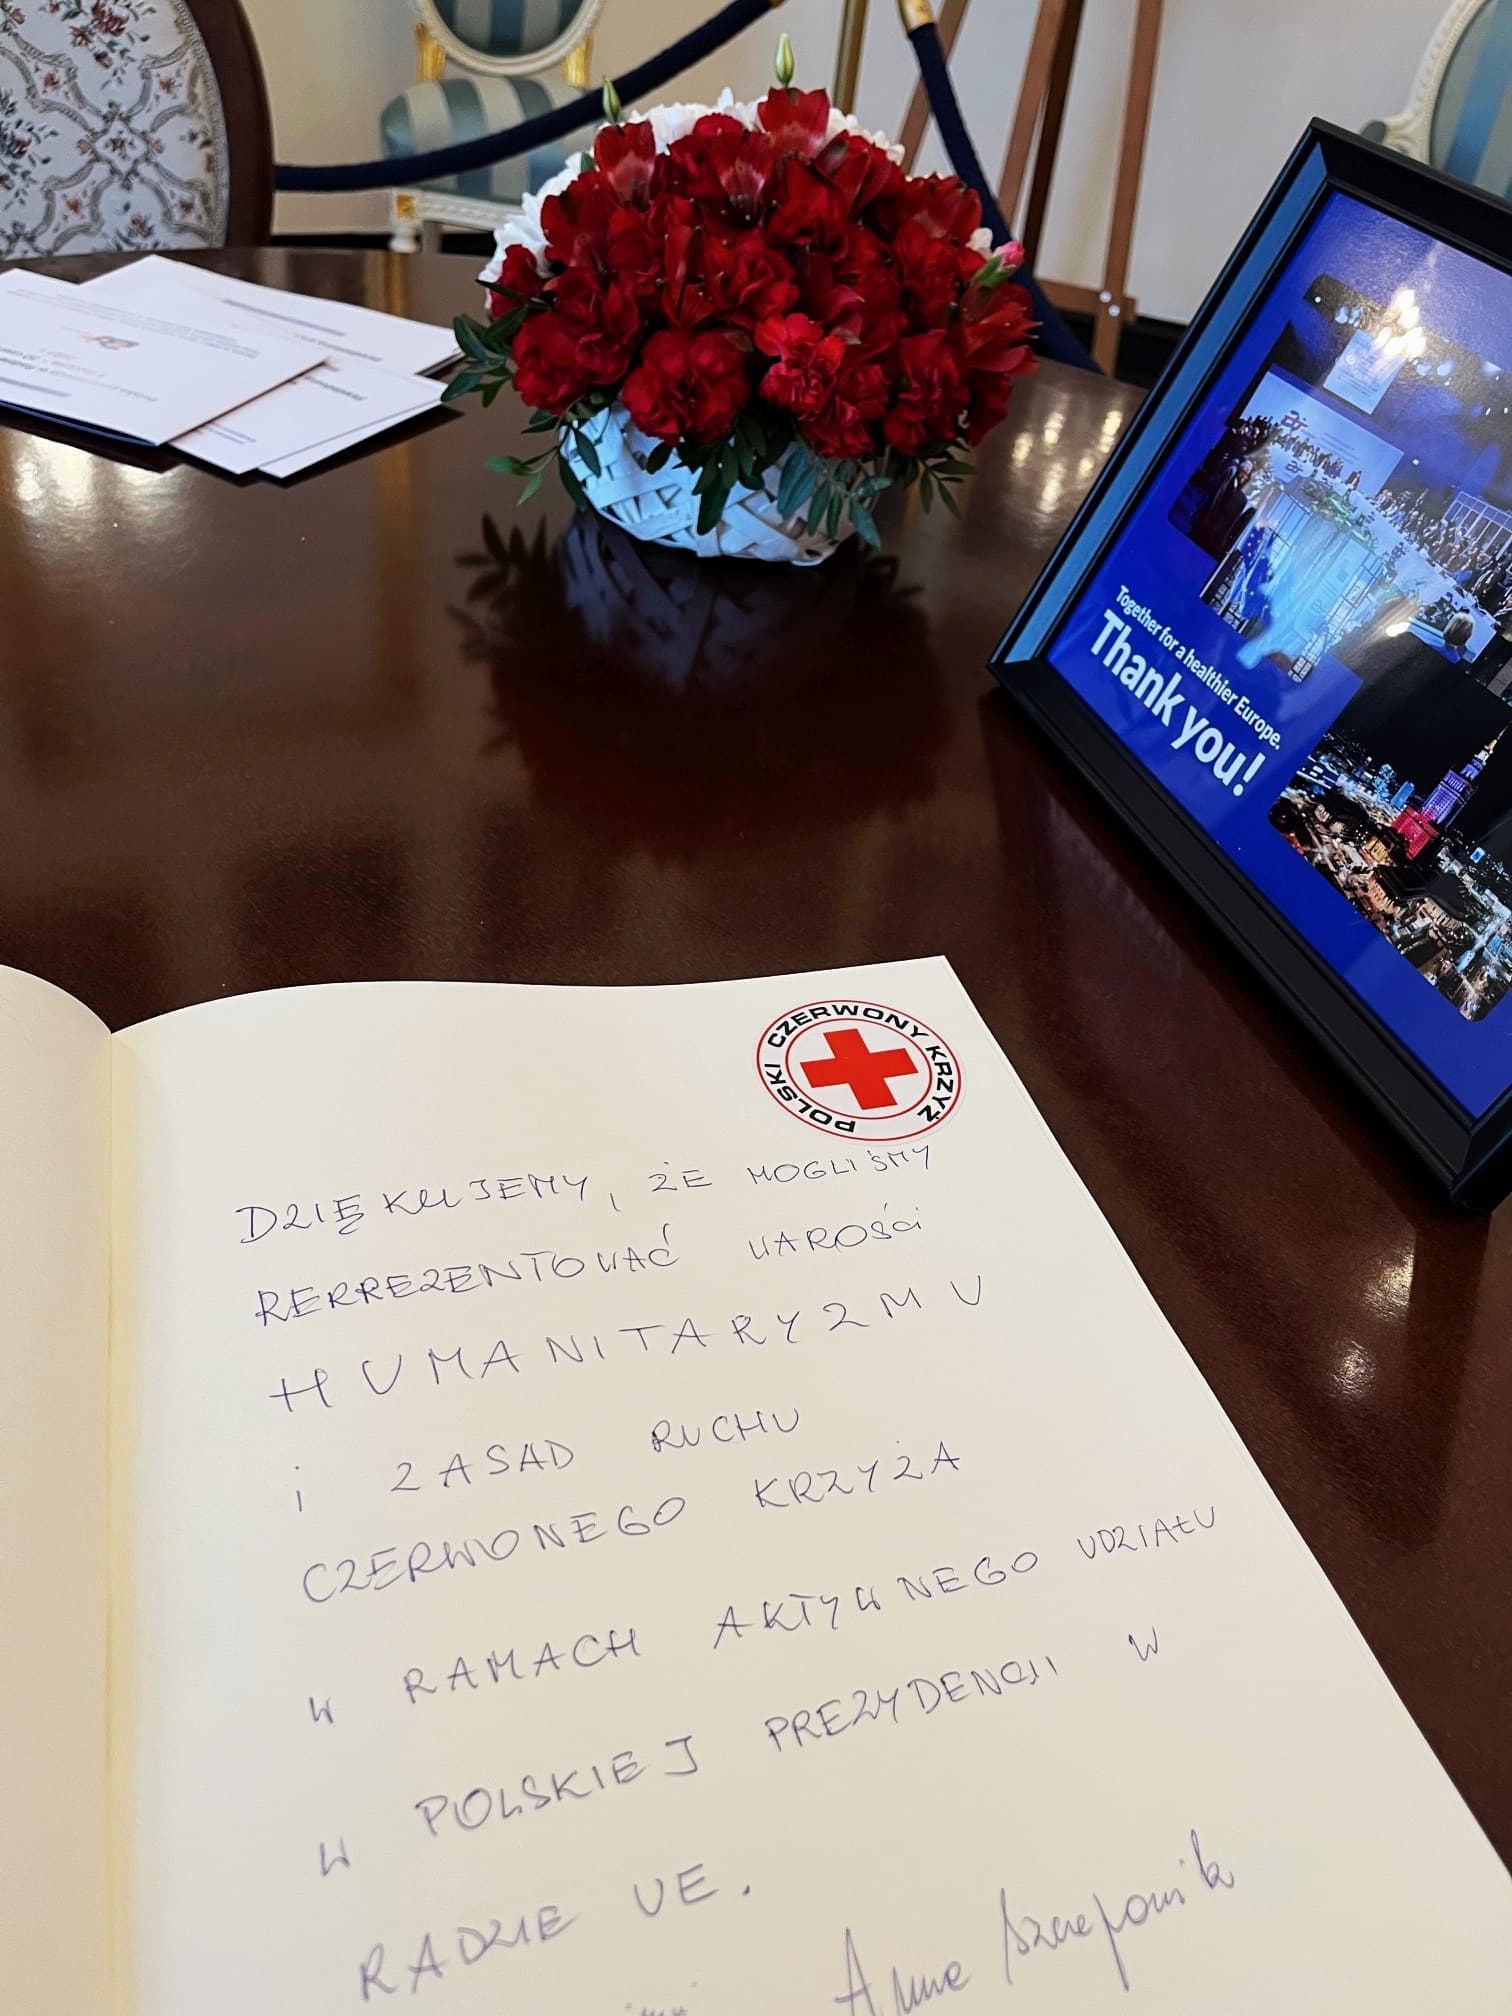 Together for a healthier Europe.
Thank you!
POLSKI CZERWONY KRZYŻ
DZIĘKUJEMY, ŻE MOGLIŚMY
REPREZENTOWAĆ WAROŚCI
HUMANITARYZMU
i ZASAD RUCHU
CZERWONEGO KRZYŻA
W RAMACH AKTYWNEGO UDZIAŁU
W POLSKIEJ PREZYDENCJI W
RADZIE UE.
Anna Szczepanik